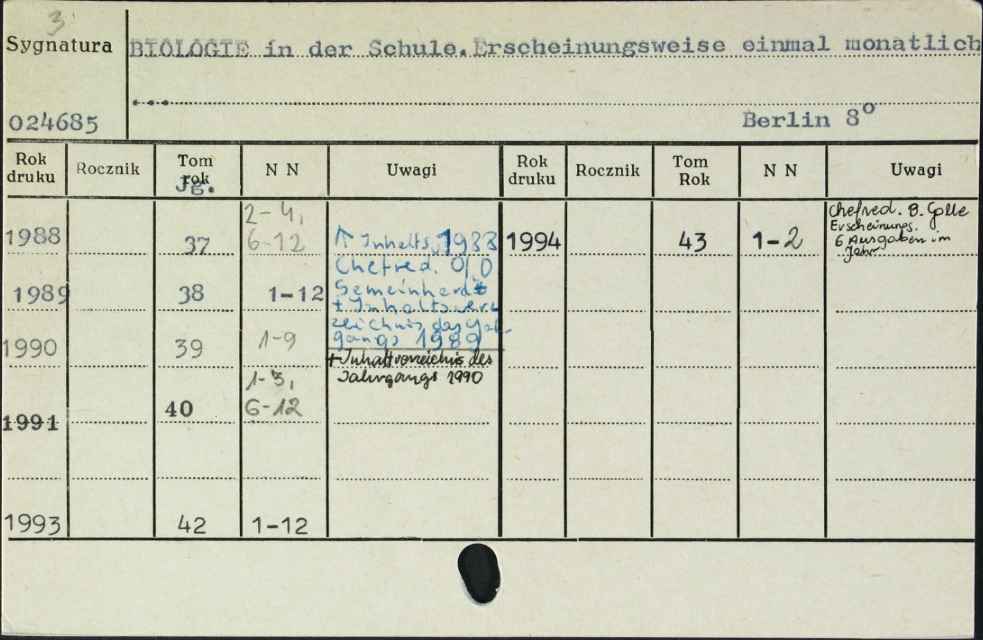 3
Sygnatura BIOLOGIE in der Schule. Erscheinungsweise einmal monatlich
...
024685 Berlin 8°
Rok druku Rocznik Tom rok Jg. N N Uwagi Rok druku Rocznik Tom Rok N N Uwagi
1988 37 2-4, 6-12 Inhalts 1988 1994 43 1-2 Chefred. B. Erscheinungs. 6 Ausgaben im Jahr
Chefred.
1989 38 1-12 Gemeinhardt
+ Inhaltsver
zeichnis des
gangs 1989
1990 39 1-9 + Inhaltverzeichnis des
Jahrgangs 1990
1991 40 1-3, 6-12
1993 42 1-12